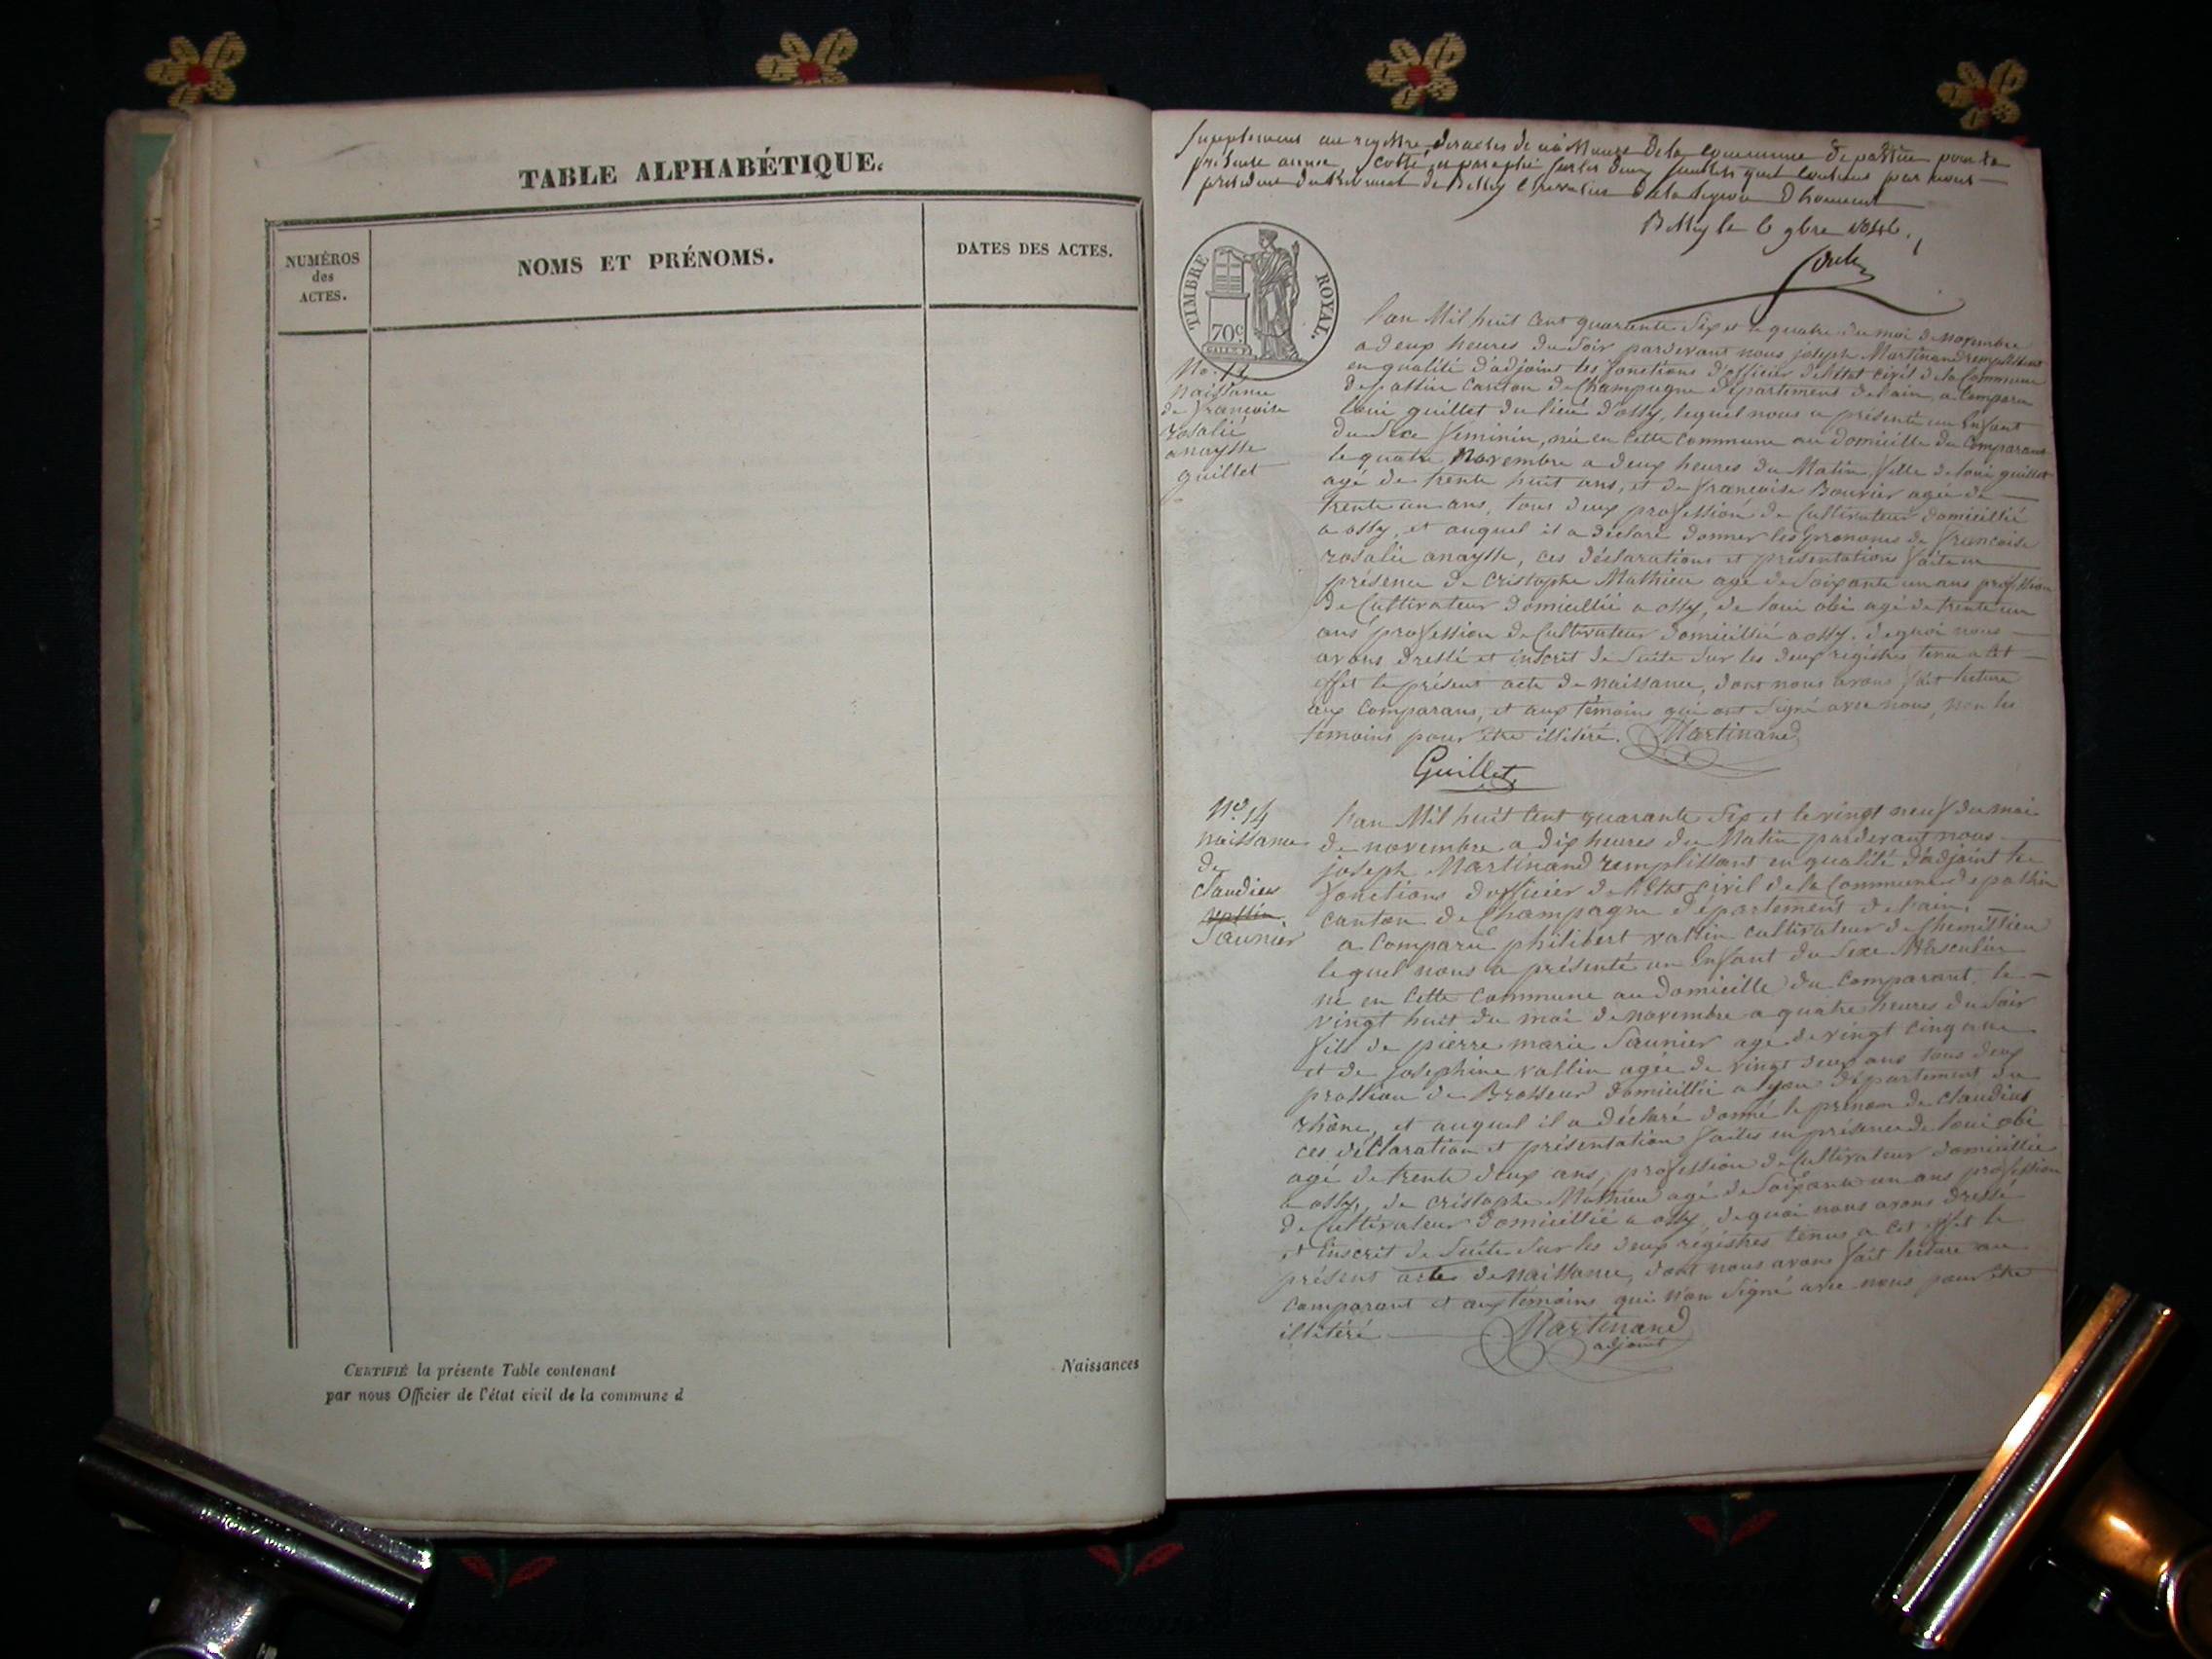 TABLE ALPHABÉTIQUE.
NUMÉROS
des
ACTES.
NOMS ET PRÉNOMS.
DATES DES ACTES.
CERTIFIÉ la présente Table contenant
Naissances
par nous Officier de l'état civil de la commune d
Supplement au registre des actes de naissance de la commune de passin pour la
présente année, cotté et paraphé sur les deux feuillets quil contient par nous
président du tribunal de Belley Chevalier de la légion d'honneur
Belley le 6 9bre 1846.
TIMBRE ROYAL.
70c
No. 13
naissance
de françoise
rosalie
anaysse
guillet
L'an Mil huit Cent quarante Six et le quatre du moi de novembre
a deux heures du Soir pardevant nous joseph Martinand remplissant
en qualité d'adjoint les fonctions d'officier de l'état civil de la Commune
de passin canton de Champagne département de l'ain, a Comparu
loui guillet du lieu d'ossy, lequel nous a présenté un Enfant
du Sexe feminin, née en cette commune au domicille du Comparant
le quatre Novembre a deux heures du Matin, fille de loui guillet
agé de trente huit ans, et de françoise Bouvier agée de
trente un ans, tous deux profession de Cultivateur domicillié
a ossy, et auquel il a déclaré donner les prenoms de francoise
rosalie anaysse, ces déclarations et présentations faite en
présence de cristophe Mathieu agé de Soixante un ans profession
de Cultivateur domicillié a ossy, de loui obi agé de trente un
ans profession de Cultivateur domicillié a ossy, de quoi nous
avons dressé et inscrit de Suite Sur les deux registres tenu a cet
effet le présent acte de naissance, dont nous avons fait lecture
aux Comparans, et aux témoins qui ont Signé avec nous, non les
témoins pour être illitéré. Martinand
Guillet
No. 14
naissance
de
claudius
vallin
Saunier
L'an Mil huit Cent quarante Six et le vingt neuf du moi
de novembre a dix heures du Matin pardevant nous
joseph Martinand remplissant en qualité d'adjoint les
fonctions d'officier de l'Etat civil de la Commune de passin
canton de Champagne département de l'ain,
a Comparu philibert vallin cultivateur de Chemillieu
lequel nous a présenté un Enfant du Sexe Masculin
né en Cette Commune au domicille du Comparant, le
vingt huit du moi de novembre a quatre heures du Soir
fils de pierre marie Saunier agé de vingt cinq ans
et de josephine vallin agée de vingt deux ans tous deux
profession de Brosseur domicillié a lyon département du
rhône, et auquel il a déclaré donné le prénom de claudius
ces déclaration et présentation faites en présence de loui obi
agé de trente deux ans, profession de Cultivateur domicillié
a ossy, de cristophe Mathieu agé de Soixante un ans profession
de Cultivateur domicillié a ossy, de quoi nous avons dressé
et inscrit de Suite Sur les deux registres tenus a cet effet le
présent acte de naissance, dont nous avons fait lecture au
comparant et aux témoins qui n'on Signé avec nous pour être
illitéré Martinand
adjoint